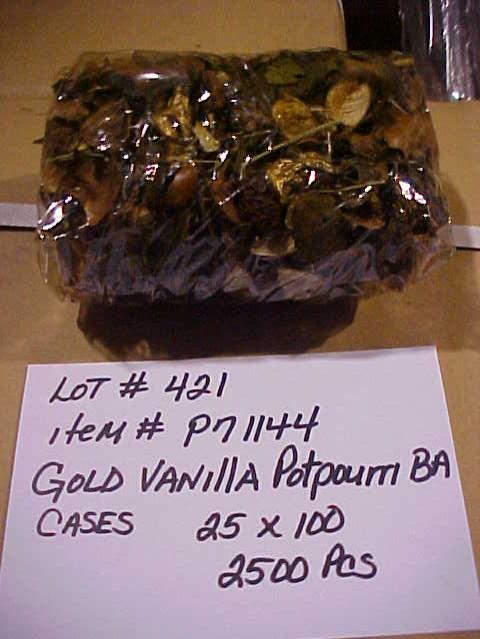 LOT # 421
item # P71144
GOLD VANIllA Potpourri BA
CASES 25 x 100
2500 PCS